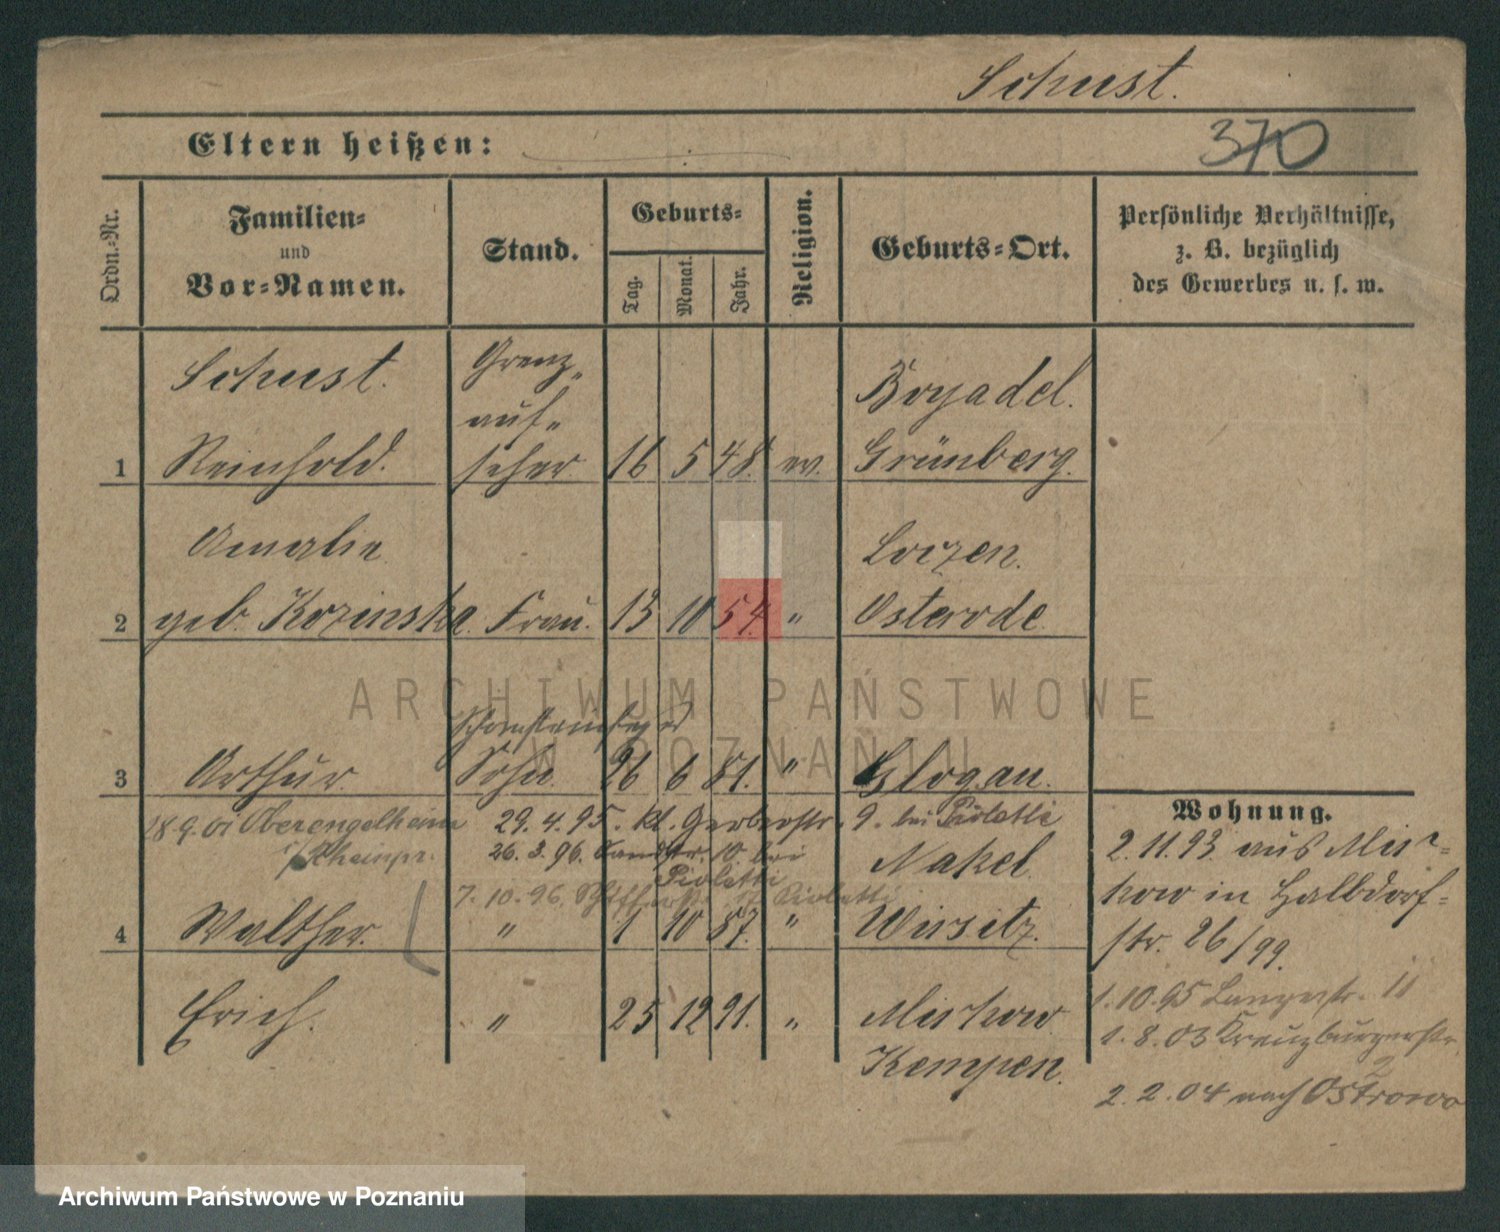 Schust.
Eltern heißen:
370
Ordn.-Nr.
Familien-
und
Vor-Namen.
Stand.
Geburts-
Tag.
Monat.
Jahr.
Religion.
Geburts-Ort.
Persönliche Verhältnisse,
z. B. bezüglich
des Gewerbes u. s. w.
Schust.
Grenz-
auf-
Boyadel.
1 Reinhold. seher 16 5 48. ev. Grünberg.
Amalie Lorzen.
2 geb. Kozinska. Frau. 13 10 54. " Osterode.
ARCHIWUM PAŃSTWOWE
W POZNANIU
Schornsteinfeger
3 Arthur. Sohn. 26 6 81. " Glogau.
18 9. 01 Oberengelheim
29. 4. 95. kl. Gerberstr. 9. bei Pioletti
26. 3. 96. 10 bei
Pioletti
Nakel.
7. 10. 96. 17 Pioletti
4 Walther. " 1 10 87. " Wirsitz.
Erich. " 25 12 91. " Mirkow
Kempen.
Wohnung.
2. 11. 93. aus Mir-
kow in Halbdorf-
str. 26/99.
1. 10. 95 Langestr. 11
1. 8. 03 Kreuzburgerstr.
2
2. 2. 04 nach Ostrowo
Archiwum Państwowe w Poznaniu